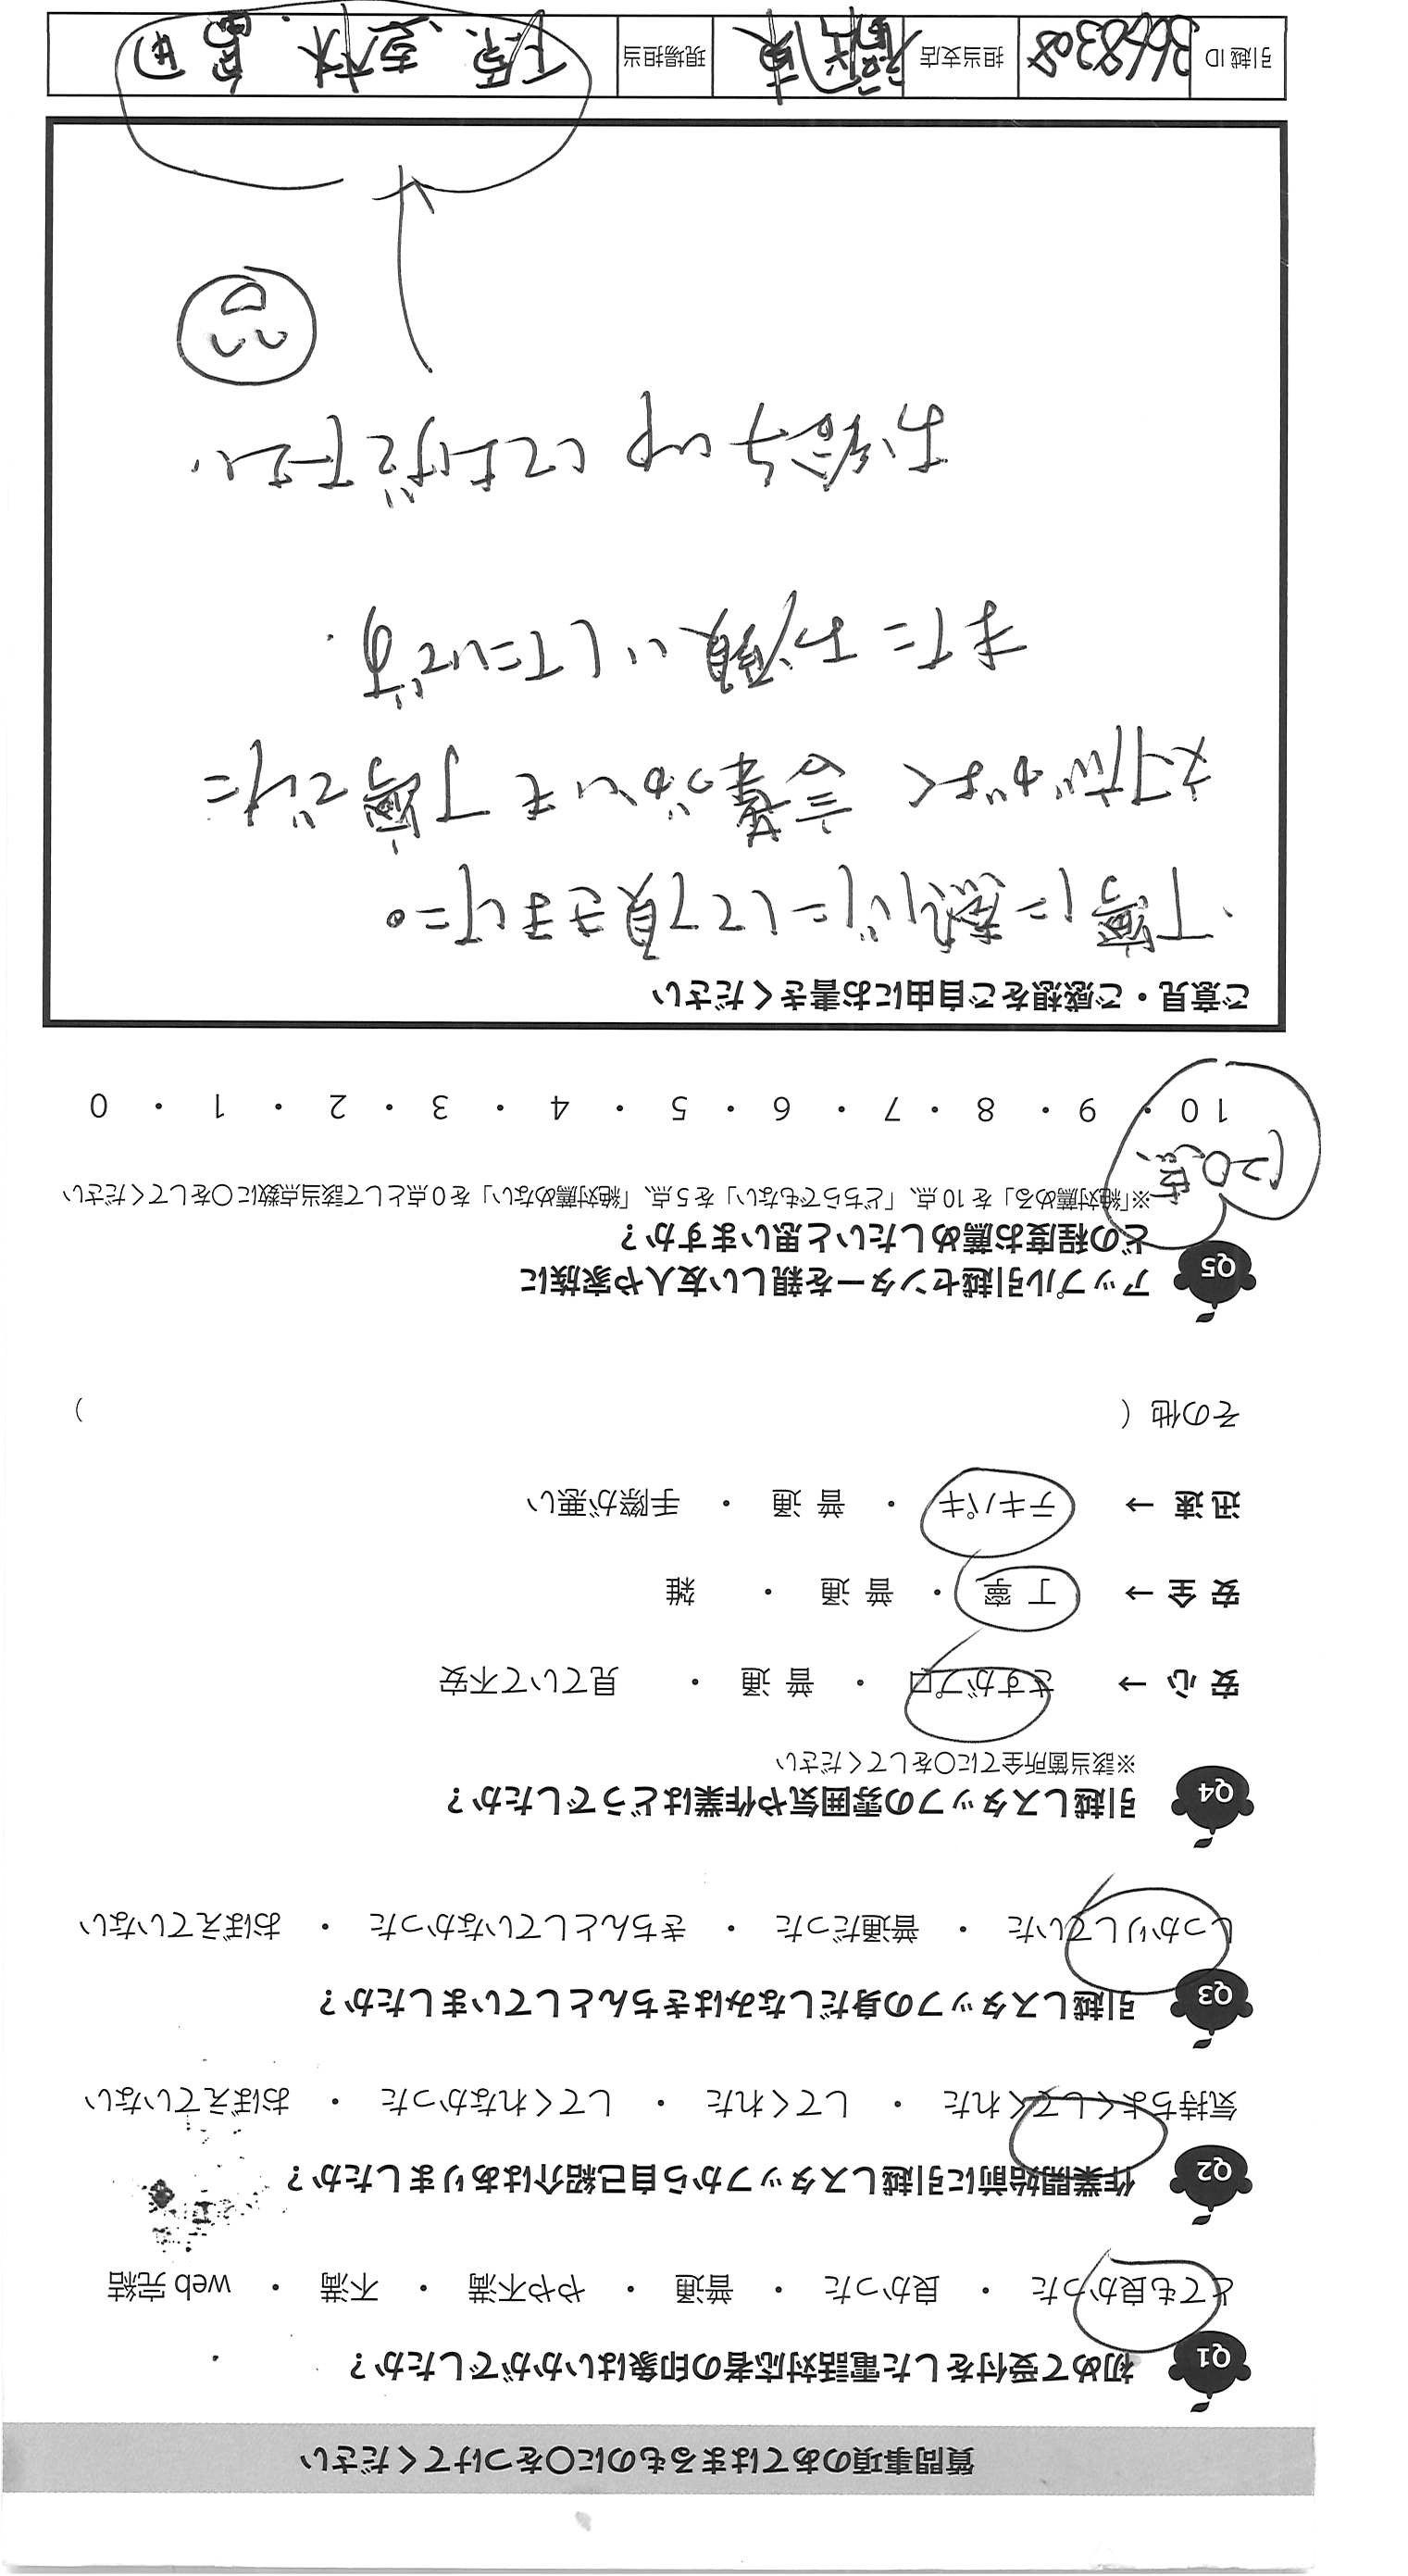 質問事項のあてはまるものに〇をつけてください
Q1 初めて受付をした電話対応者の印象はいかがでしたか？
とても良かった ・ 良かった ・ 普通 ・ やや不満 ・ 不満 ・ web 完結
Q2 作業開始前に引越しスタッフから自己紹介はありましたか？
気持ちよくしてくれた ・ してくれた ・ してくれなかった ・ おぼえていない
Q3 引越しスタッフの身だしなみはきちんとしていましたか？
しっかりしていた ・ 普通だった ・ きちんとしていなかった ・ おぼえていない
Q4 引越しスタッフの雰囲気や作業はどうでしたか？
※該当箇所全てに〇をしてください
安 心 → さすがプロ ・ 普 通 ・ 見ていて不安
安 全 → 丁 寧 ・ 普 通 ・ 雑
迅 速 → テキパキ ・ 普 通 ・ 手際が悪い
その他（ ）
Q5 アップル引越センターを親しい友人や家族に
どの程度お薦めしたいと思いますか？
※「絶対薦める」を 10 点、「どちらでもない」を 5 点、「絶対薦めない」を 0 点として該当点数に〇をしてください
120点
10 ・ 9 ・ 8 ・ 7 ・ 6 ・ 5 ・ 4 ・ 3 ・ 2 ・ 1 ・ 0
ご意見・ご感想をご自由にお書きください
・丁寧に梱包して頂きました。
対応がよく 言葉づかいも丁寧でした
またお願いしたいです.
お給料 up してあげて下さい
引越 ID 3668308 担当支店 現場担当